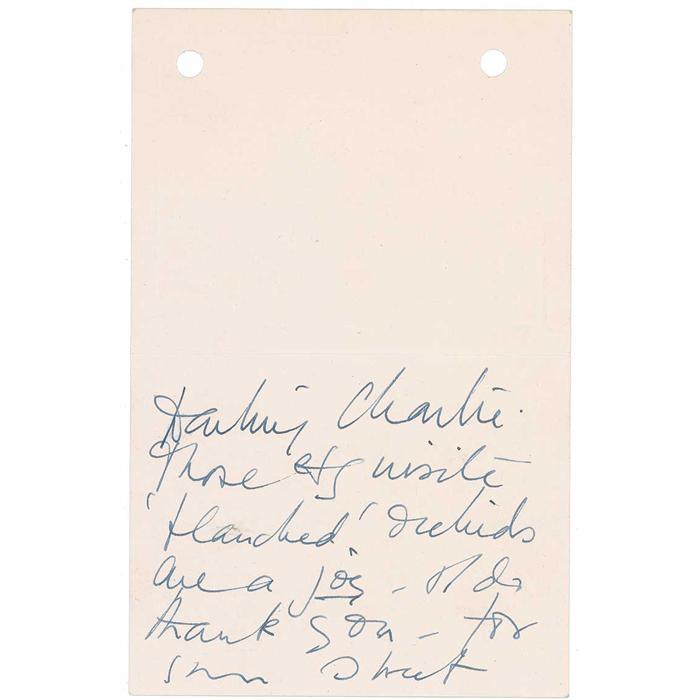 Darling Charlie.
Those exquisite
'blanched' orchids
are a joy - I do
thank you - for
your sweet